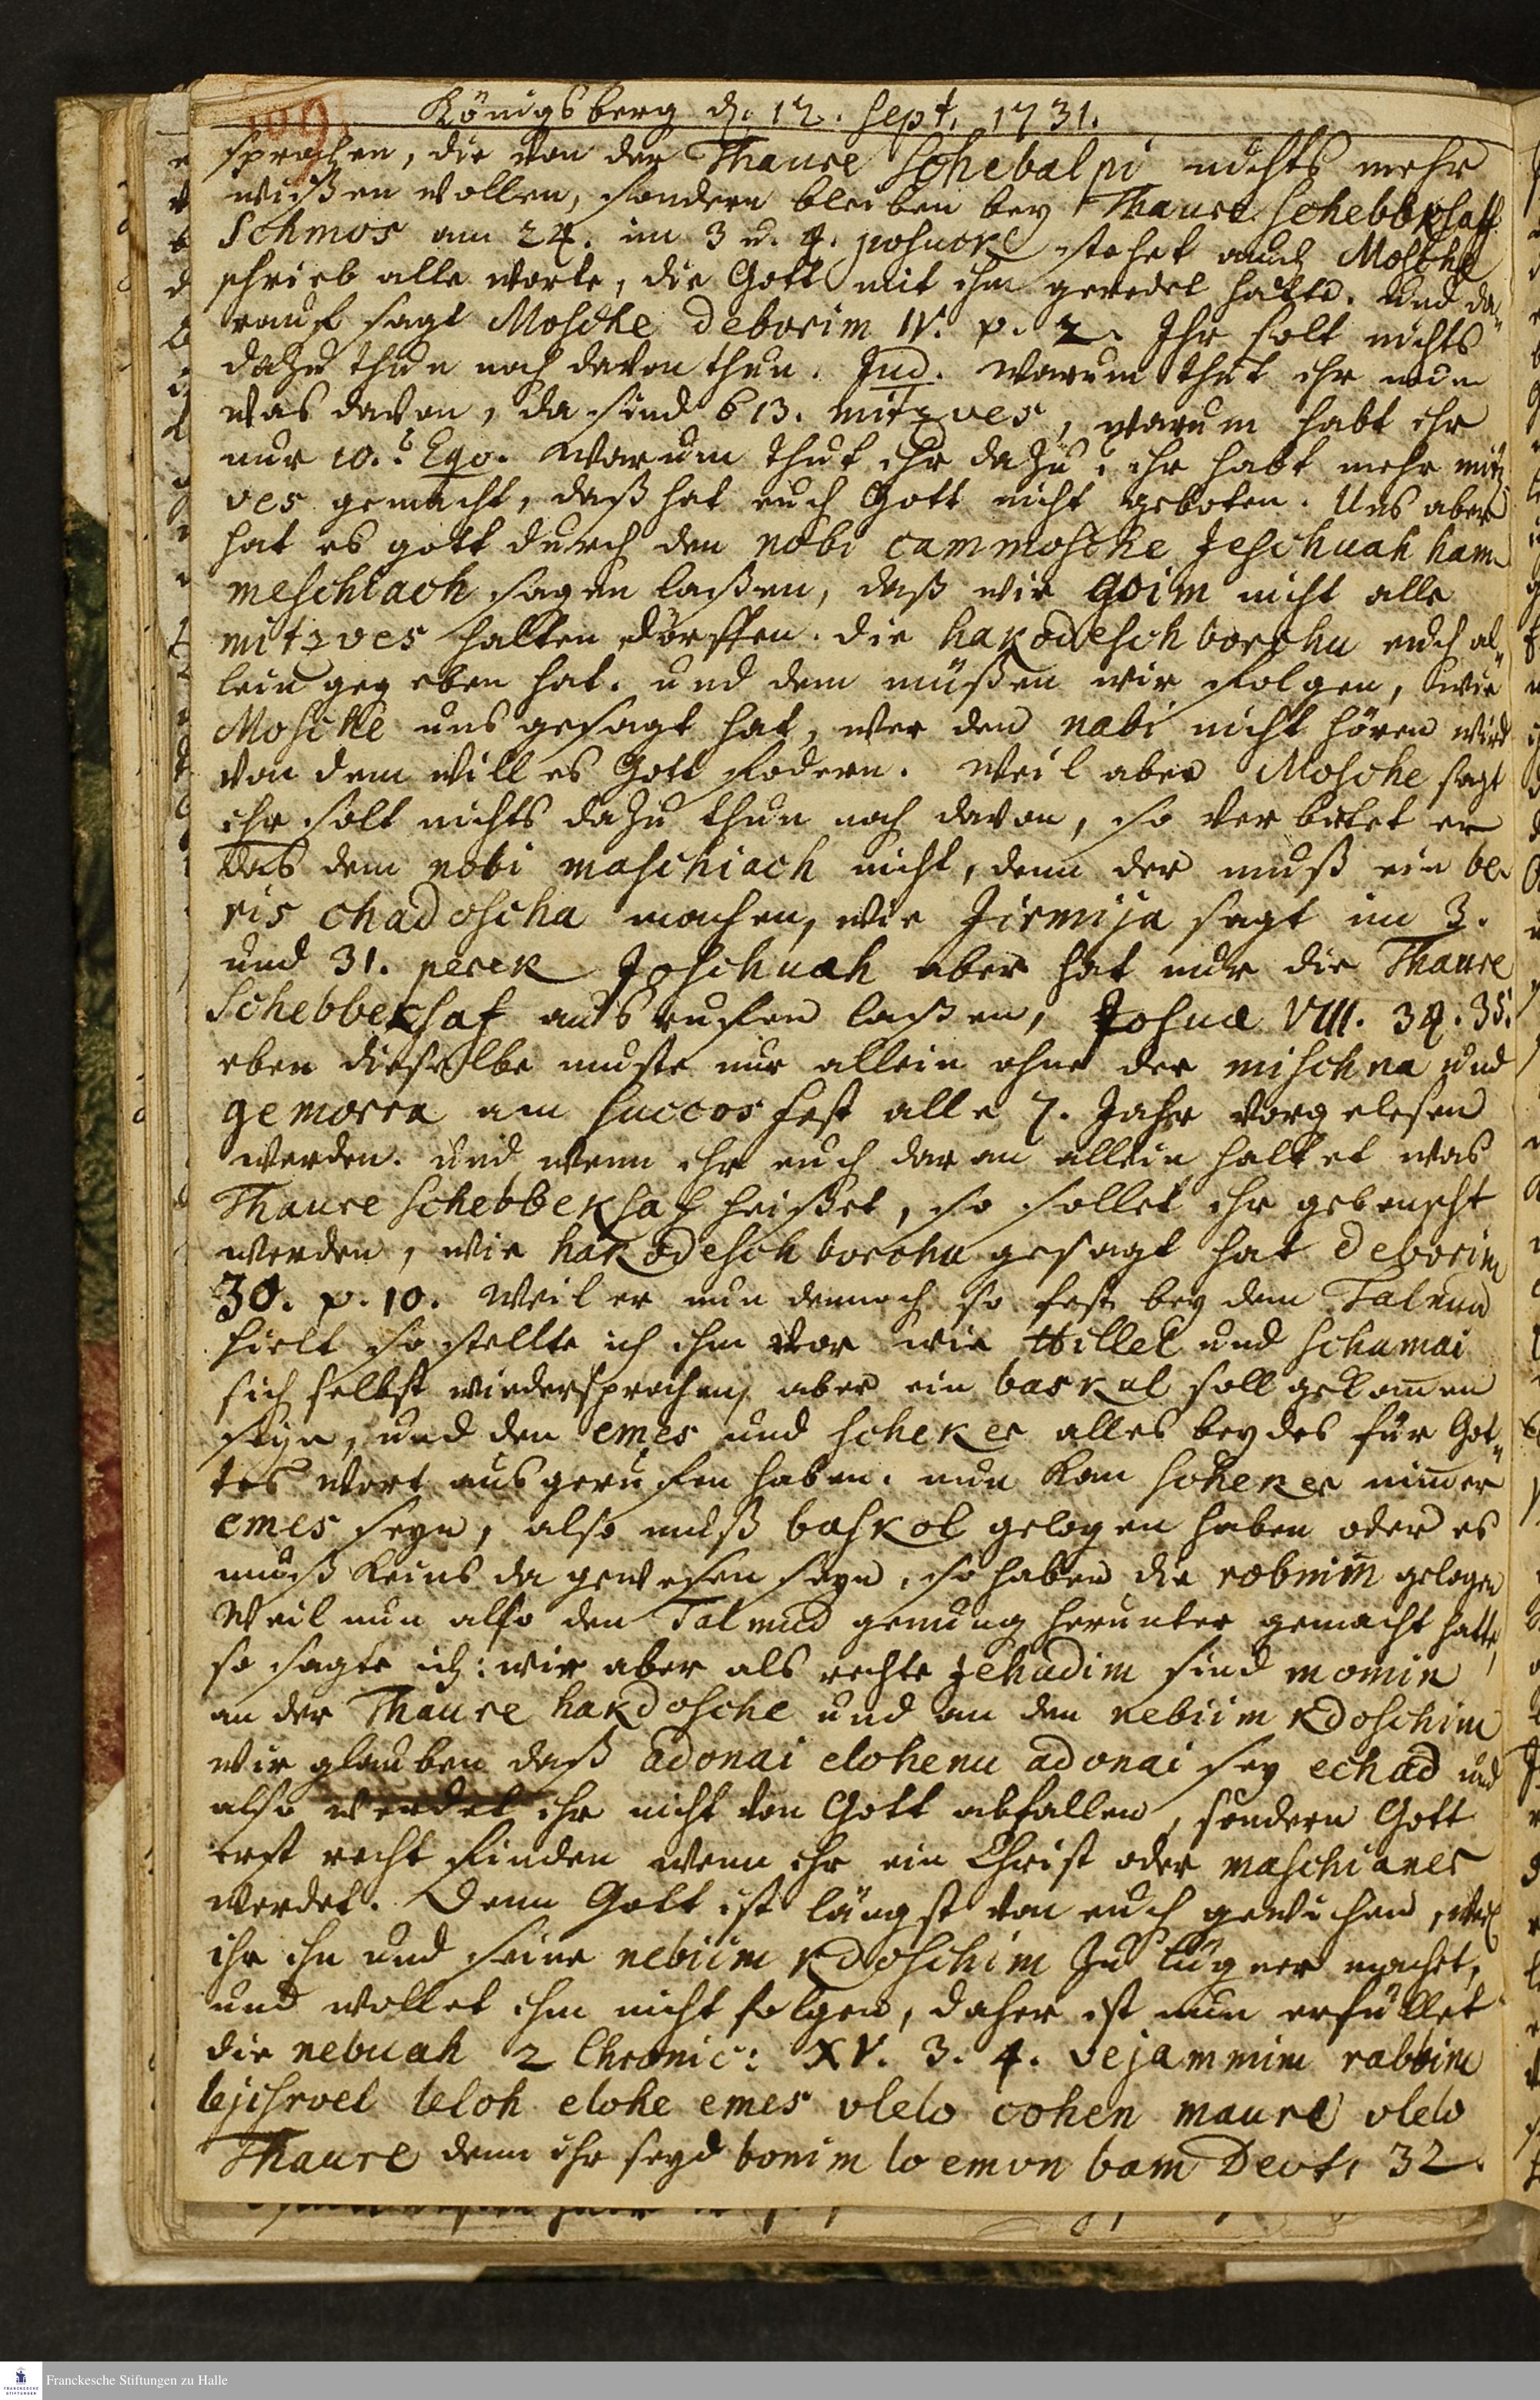 109.
Königsberg d. 12. Sept. 1731.
sprachen, die von der Thaure schebalpi nichts mehr
wißen wollen, sondern bleiben bey Thaure schebbeksaff
Schmos am 24. im 3 u. 4. posuck stehet auch Mosche
schrieb alle worte, die Gott mit ihm geredet hatte. und da„
rauf sagt Mosche deborim IV. p. 2. Ihr solt nichts
dazu thun noch davon thun. Jud. warum thut ihr nun
was davon, da sind 613. mitzves, warum habt ihr
nur 10.? Ego. warum thut ihr dazu? ihr habt mehr mitz
ves gemacht, daß hat euch Gott nicht geboten. Uns aber
hat es gott durch den nobi cammosche Jeschuah ham„
meschiach sagen laßen, daß wir Goim nicht alle
mitzves halten dörffen. die hakodesch borchu euch al„
lein gegeben hat. und dem müßen wir folgen, wie
Mosche uns gesagt hat, wer den nabi nicht hören wird
von dem will es Gott fodern. Weil aber Mosche sagt
ihr solt nichts dazu thun noch davon, so verbietet er
das dem nobi maschiach nicht, denn der muß ein be„
ris chadoscha machen, wie Jirmija sagt im 3.
und 31. perek Joschuah aber hat nur die Thaure
Schebbeksaf ausruffen laßen, Josuæ VIII. 34. 35.
eben dieselbe muste nur allein ohne der mischna und
gemorra am succos fest alle 7. Jahr vorgelesen
werden. und wenn ihr euch daran allein haltet was
Thaure schebbeksaf heißet, so sollet ihr gebenscht
werden, wie hakodesch borchu gesagt hat deborim
30. p. 10. Weil er nun dennoch so fest bey dem Talmud
hielt so stellte ich ihm vor wie Hillel und Schamai
sich selbst wiedersprochen, aber ein baskol soll gekom̄en
seyn, und den emes und scheker alles beydes für Got„
tes Wort ausgeruffen haben. nun kan scheker nim̄er
emes seyn, also muß baskol gelogen haben oder es
muß keins da gewesen seyn, so haben die robnim gelogen
Weil nun also den Talmud genung herunter gemacht hatte,
so sagte ich: wir aber als rechte Jehudim sind momin
an der Thaure hakdosche und an den nebiim kdoschim
wir glauben daß adonai elohenu adonai sey echad und
also werdet ihr nicht von Gott abfallen, sondern Gott
erst recht finden wenn ihr ein Christ oder maschianer
werdet. Denn Gott ist längst von euch gewichen, weil
ihr ihn und seine nebiim kdoschim zu lügner machet,
und wollet ihm nicht folgen, daher ist nun erfüllet
die nebuah 2 Chronic: XV. 3. 4. vejammim rabbim
lejisroel leloh elohe emes vlelo cohen maure vlelo
Thaure denn ihr seyd bonim lo emun bam Deut. 32.
Franckesche Stiftungen zu Halle